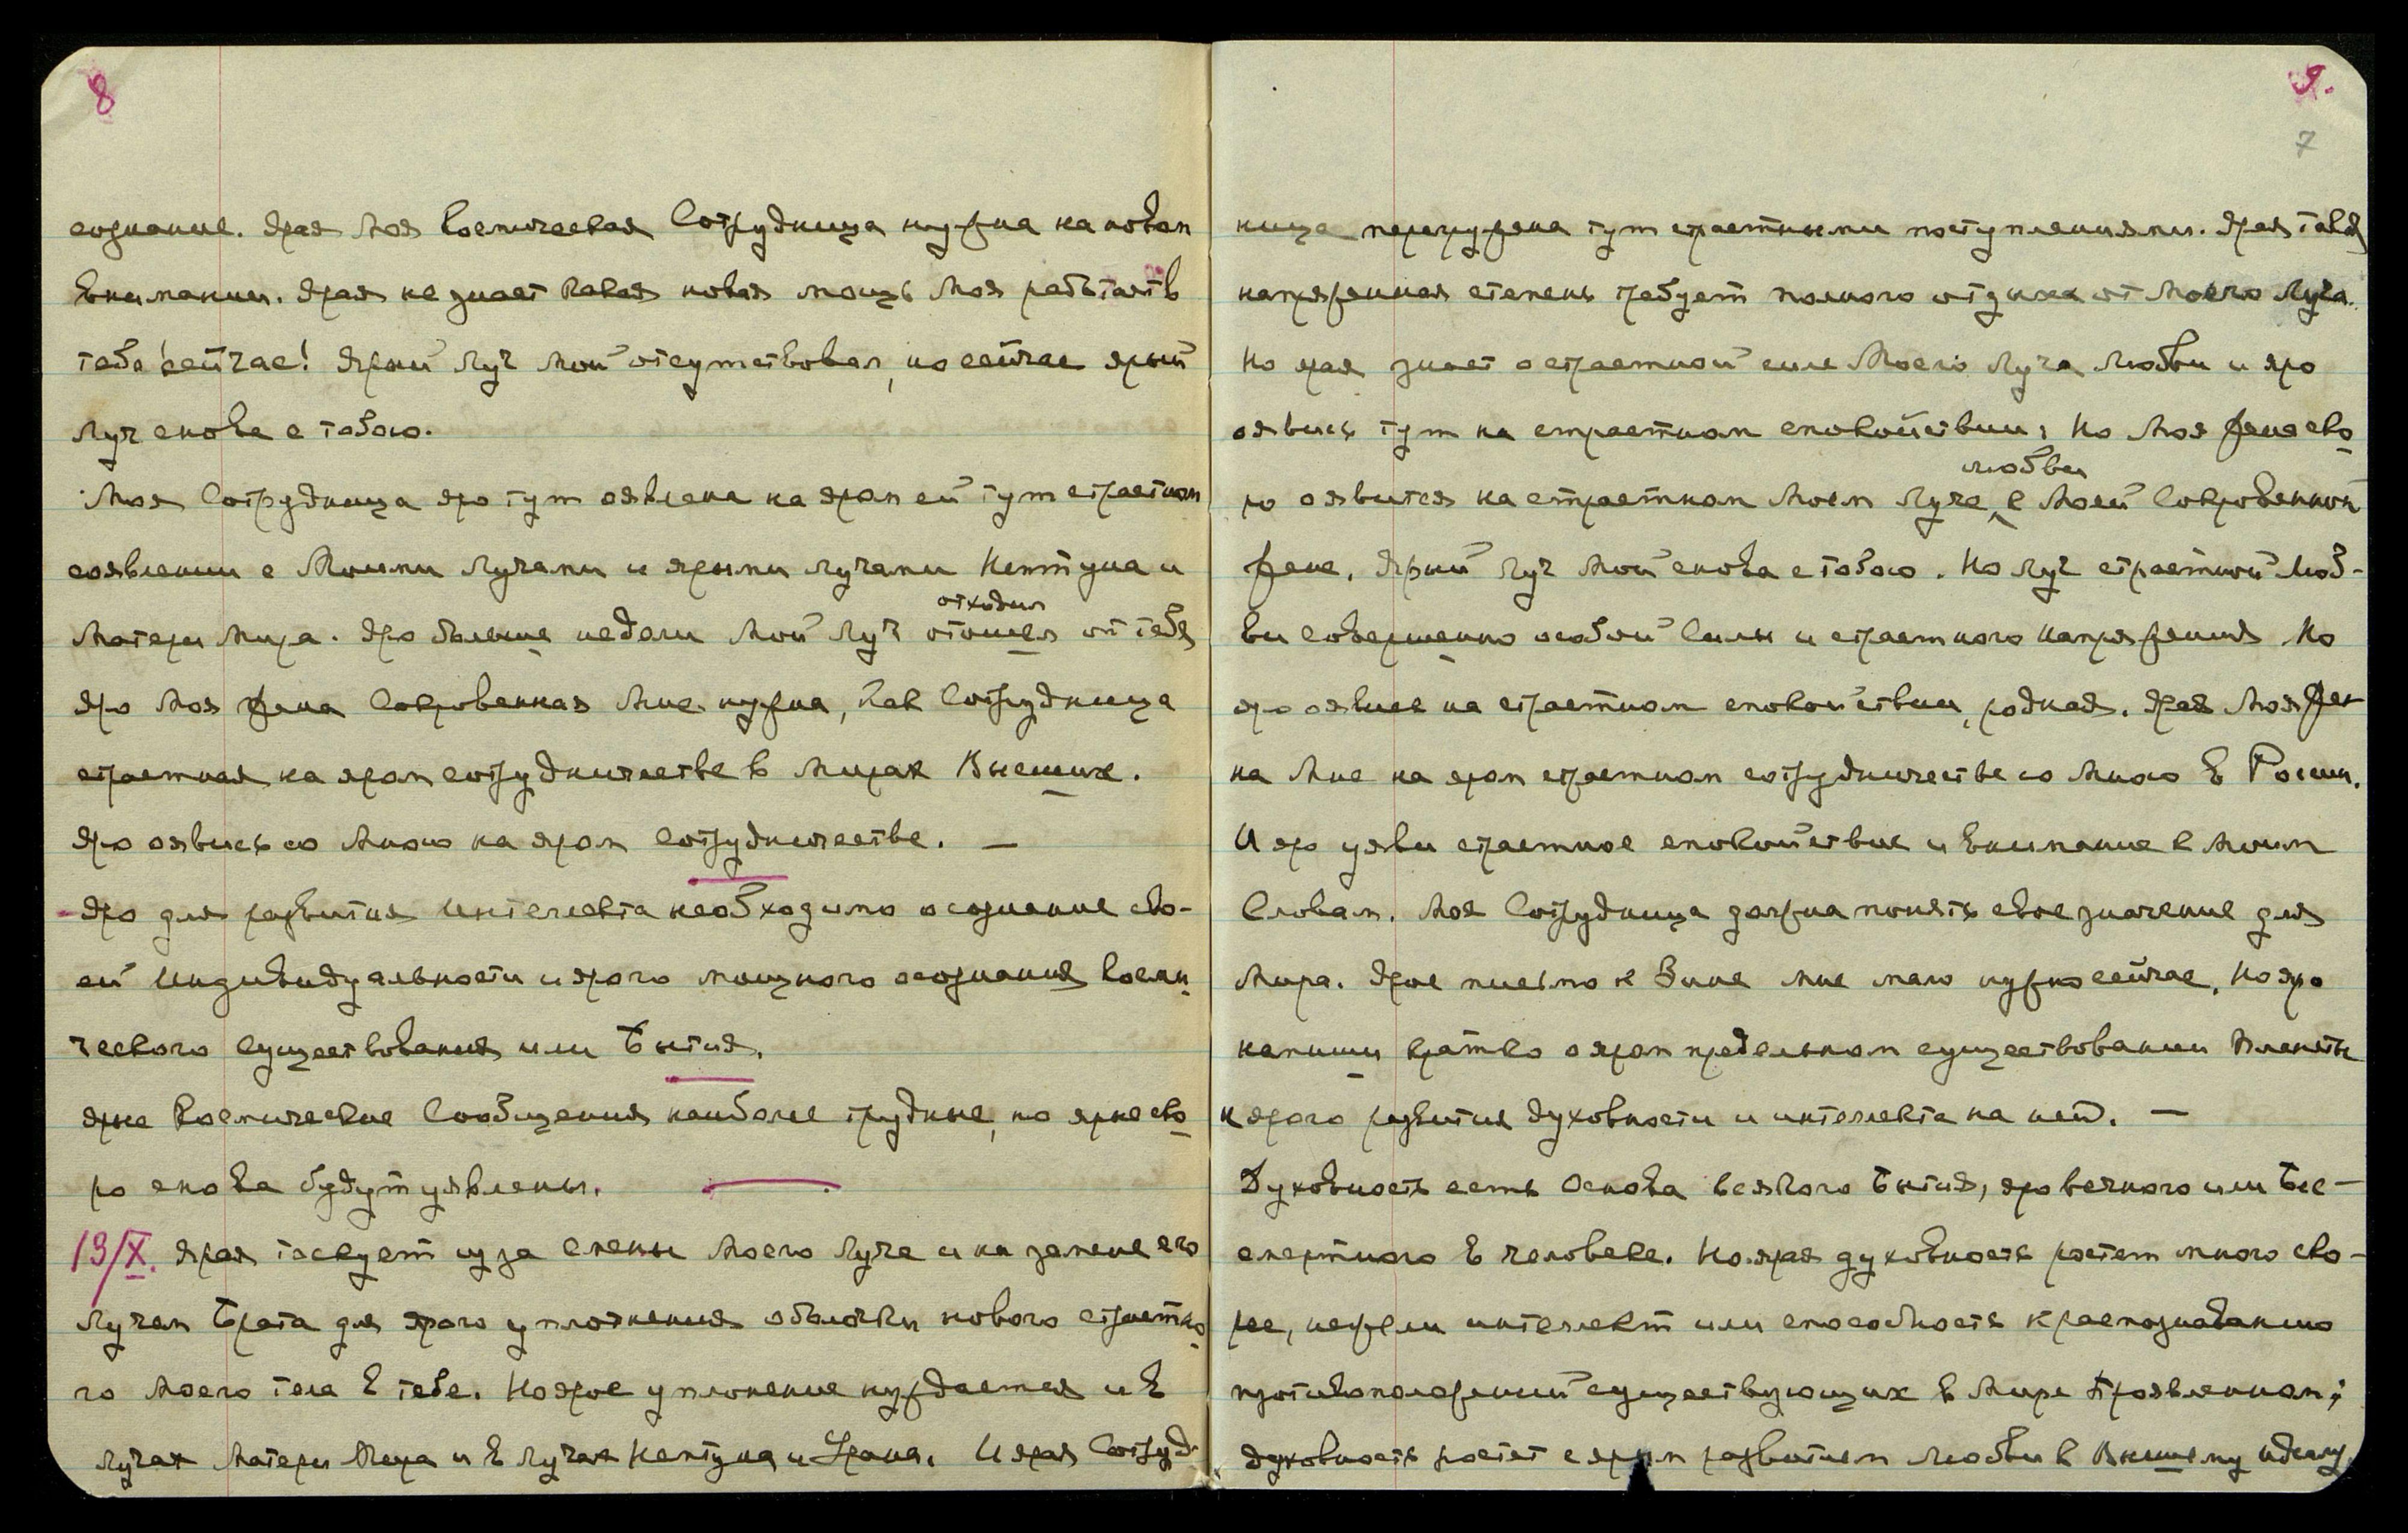 8
сознание. Ярая Моя Космическая Сотрудница нужна на новом
внимании. Ярая не знает какая новая мощь Моя работает в
тебе сейчас! Ярый Луч Мой отсутствовал, но сейчас ярый
Луч снова с тобою.
Моя Сотрудница яро тут оявлена на яром ей тут страстном
соявлении с Моими Лучами и ярыми лучами Нептуна и
отходил
Матери Мира. Яро больше недели Мой Луч отошел от тебя
Яро Моя жена Сокровенная Мне нужна, как Сотрудница
страстная на яром сотрудничестве в Мирах Высших.
Яро оявись со Мною на яром Сотрудничестве. —
Яро для развития Интеллекта необходимо осознание сво-
ей Индивидуальности и ярого мощного осознания Косми
ческого Существования или Бытия.
Ярые Космические Сообщения наиболее трудные, но ярые ско
ро снова будут уявлены.
13/X. Ярая тоскует из за смены Моего Луча и на замене его
Лучом Брата для ярого уплотнения оболочки нового страстно
го Моего тела в тебе. Но ярое уплонение нуждается и в
Лучах Матери Мира и в Лучах Нептуна и Урана. И ярая Сотруд-
9.
7
ница перегружена тут страстными поступлениями. Ярая такая
напряженная степень требует полного отдыха от Моего Луча.
Но ярая знает о страстной силе Моего Луча Любви и яро
оявись тут на страстном спокойствии; Но Моя жена ско
любви
ро оявится на страстном Моем Луче, к Моей Сокровенной
жене. Ярый Луч Мой снова с тобою. Но Луч страстной Люб-
ви совершенно особой Силы и страстного напряжения Но
яро оявись на страстном спокойствии, родная. Ярая Моя нуж
на Мне на яром страстном сотрудничестве со Мною в России.
И яро уяви страстное спокойствие и внимание к Моим
Словам. Моя Сотрудница должна понять свое значение для
Мира. Ярое письмо к Зине мне мало нужно сейчас. Но яро
напиши кратко о яром предельном существовании Планеты
и ярого развития духовности и интеллекта на ней. —
Духовность есть Основа всякого Бытия, яро вечного или Бес-
смертного в человеке. Но ярая духовность растет много ско-
рее, нежели интеллект или способность к распознаванию
противоположений существующих в Мире Проявленном;
духовность растет с ярым развитием Любви к Высшему идеалу,